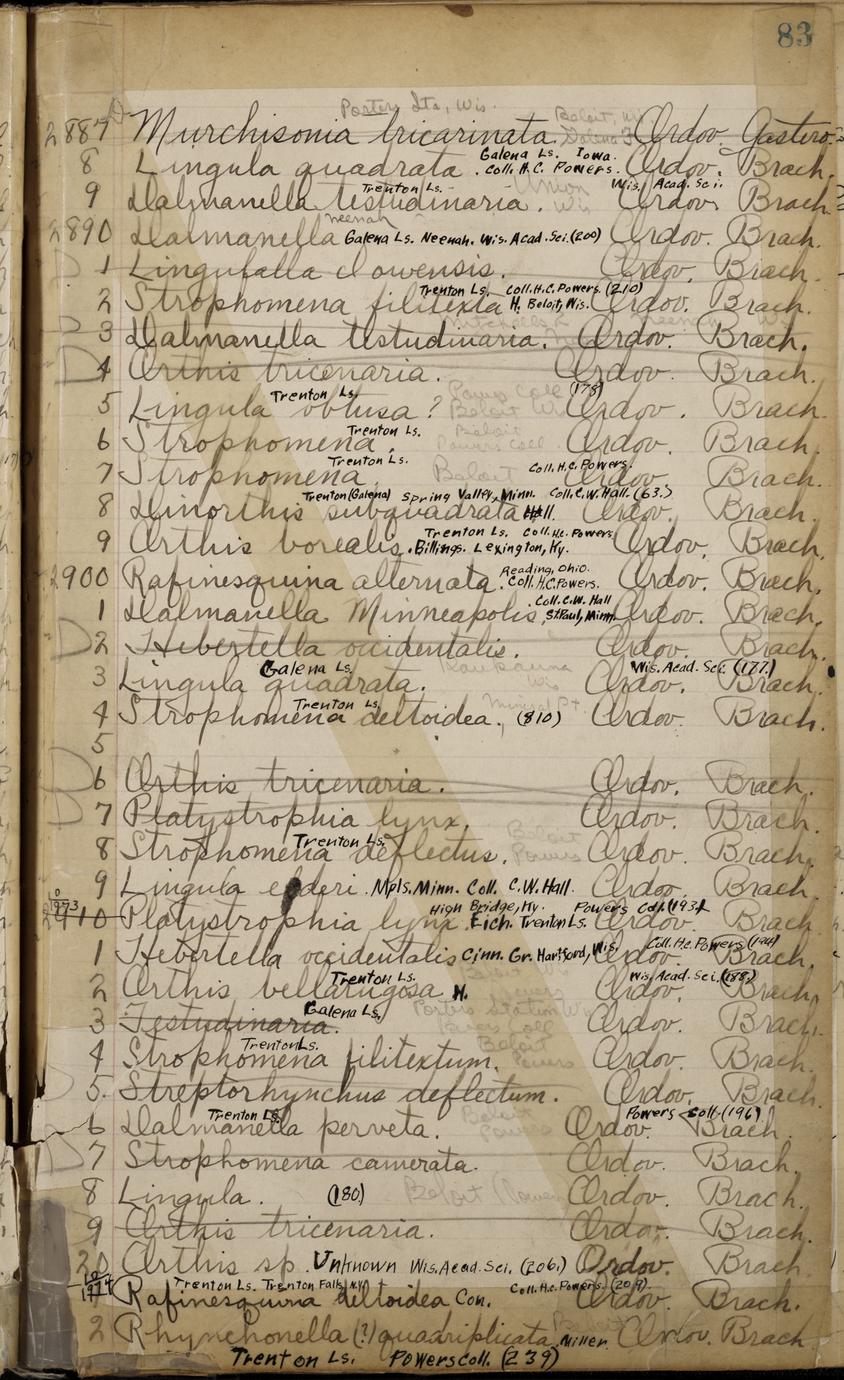 83
Porters Sta, Wis.
2887 Murchisonia tricarinata. Beloit, Wis Ordov. Gastero.
8 Lingula quadrata. Galena Ls. Iowa. Coll. H.C. Powers. Ordov. Brach.
9 Dalmanella testudinaria. Trenton Ls. Wis Wis. Acad. Sci. Ordov. Brach
2890 Dalmanella neenah Galena Ls. Neenah. Wis. Acad. Sci. (200) Ordov. Brach.
D 1 Lingulalla cf owensis. Ordov. Brach.
2 Strophomena filitexta H. Beloit, Wis. Trenton Ls. Coll. H.C. Powers. (210) Ordov. Brach.
D 3 Dalmanella testudinaria. Ordov. Brach.
D 4 Orthis tricenaria. Ordov. Brach.
5 Lingula obtusa? Trenton Ls. Powers Coll (178) Beloit Wis Ordov. Brach.
6 Strophomena. Trenton Ls. Beloit Powers Coll. Ordov. Brach.
7 Strophomena. Trenton Ls. Beloit Coll. H.C. Powers. Ordov. Brach.
8 Dinorthis subquadrata Hall. Trenton (Galena) Spring Valley, Minn. Coll. C.W. Hall. (63.) Ordov. Brach.
9 Orthis borealis. Billings. Lexington, Ky. Trenton Ls. Coll. H.C. Powers Ordov. Brach.
2900 Rafinesquina alternata. Reading, Ohio. Coll. H.C. Powers. Ordov. Brach.
1 Dalmanella Minneapolis. Coll. C.W. Hall St. Paul, Minn. Ordov. Brach.
D 2 Hebertella occidentalis. Ordov. Brach.
3 Lingula quadrata. Galena Ls. Kaukauna Wis Wis. Acad. Sci. (177.) Ordov. Brach.
4 Strophomena deltoidea. Trenton Ls. (810) Mineral Pt. Ordov. Brach.
5
D 6 Orthis tricenaria. Ordov. Brach.
D 7 Platystrophia lynx. Ordov. Brach.
8 Strophomena deflectus. Trenton Ls. Beloit Powers Ordov. Brach.
9 Lingula elderi. Mpls. Minn. Coll. C.W. Hall. Ordov. Brach.
2910 Platystrophia lynx. Eich. Trenton Ls. High Bridge, Ky. Powers Coll. (193) Ordov. Brach.
1 Hebertella occidentalis Cinn. Gr. Hartford, Wis. Coll. H.C. Powers (194) Ordov. Brach.
2 Orthis bellarugosa H. Trenton Ls. Wis. Acad. Sci. (188.) Ordov. Brach.
3 Testudinaria. Galena Ls. Porters Station Wis Powers Coll Ordov. Brach.
4 Strophomena filitextum. Trenton Ls. Beloit Powers Ordov. Brach.
5. Streptorhynchus deflectum. Ordov. Brach.
6 Dalmanella perveta. Trenton Ls. Beloit Powers Powers Coll. (196) Ordov. Brach.
D 7 Strophomena camerata. Ordov. Brach.
8 Lingula. (180) Beloit (Powers Ordov. Brach.
9 Orthis tricenaria. Ordov. Brach.
20 Orthis sp. Unknown Wis. Acad. Sci. (206.) Ordov. Brach
Rafinesquina deltoidea Con. Trenton Ls. Trenton Falls, N.Y. Coll. H.C. Powers. (209). Ordov. Brach.
2 Rhynchonella (?) quadriplicata. Miller. Ordov. Brach
Trenton Ls. Powers coll. (239)